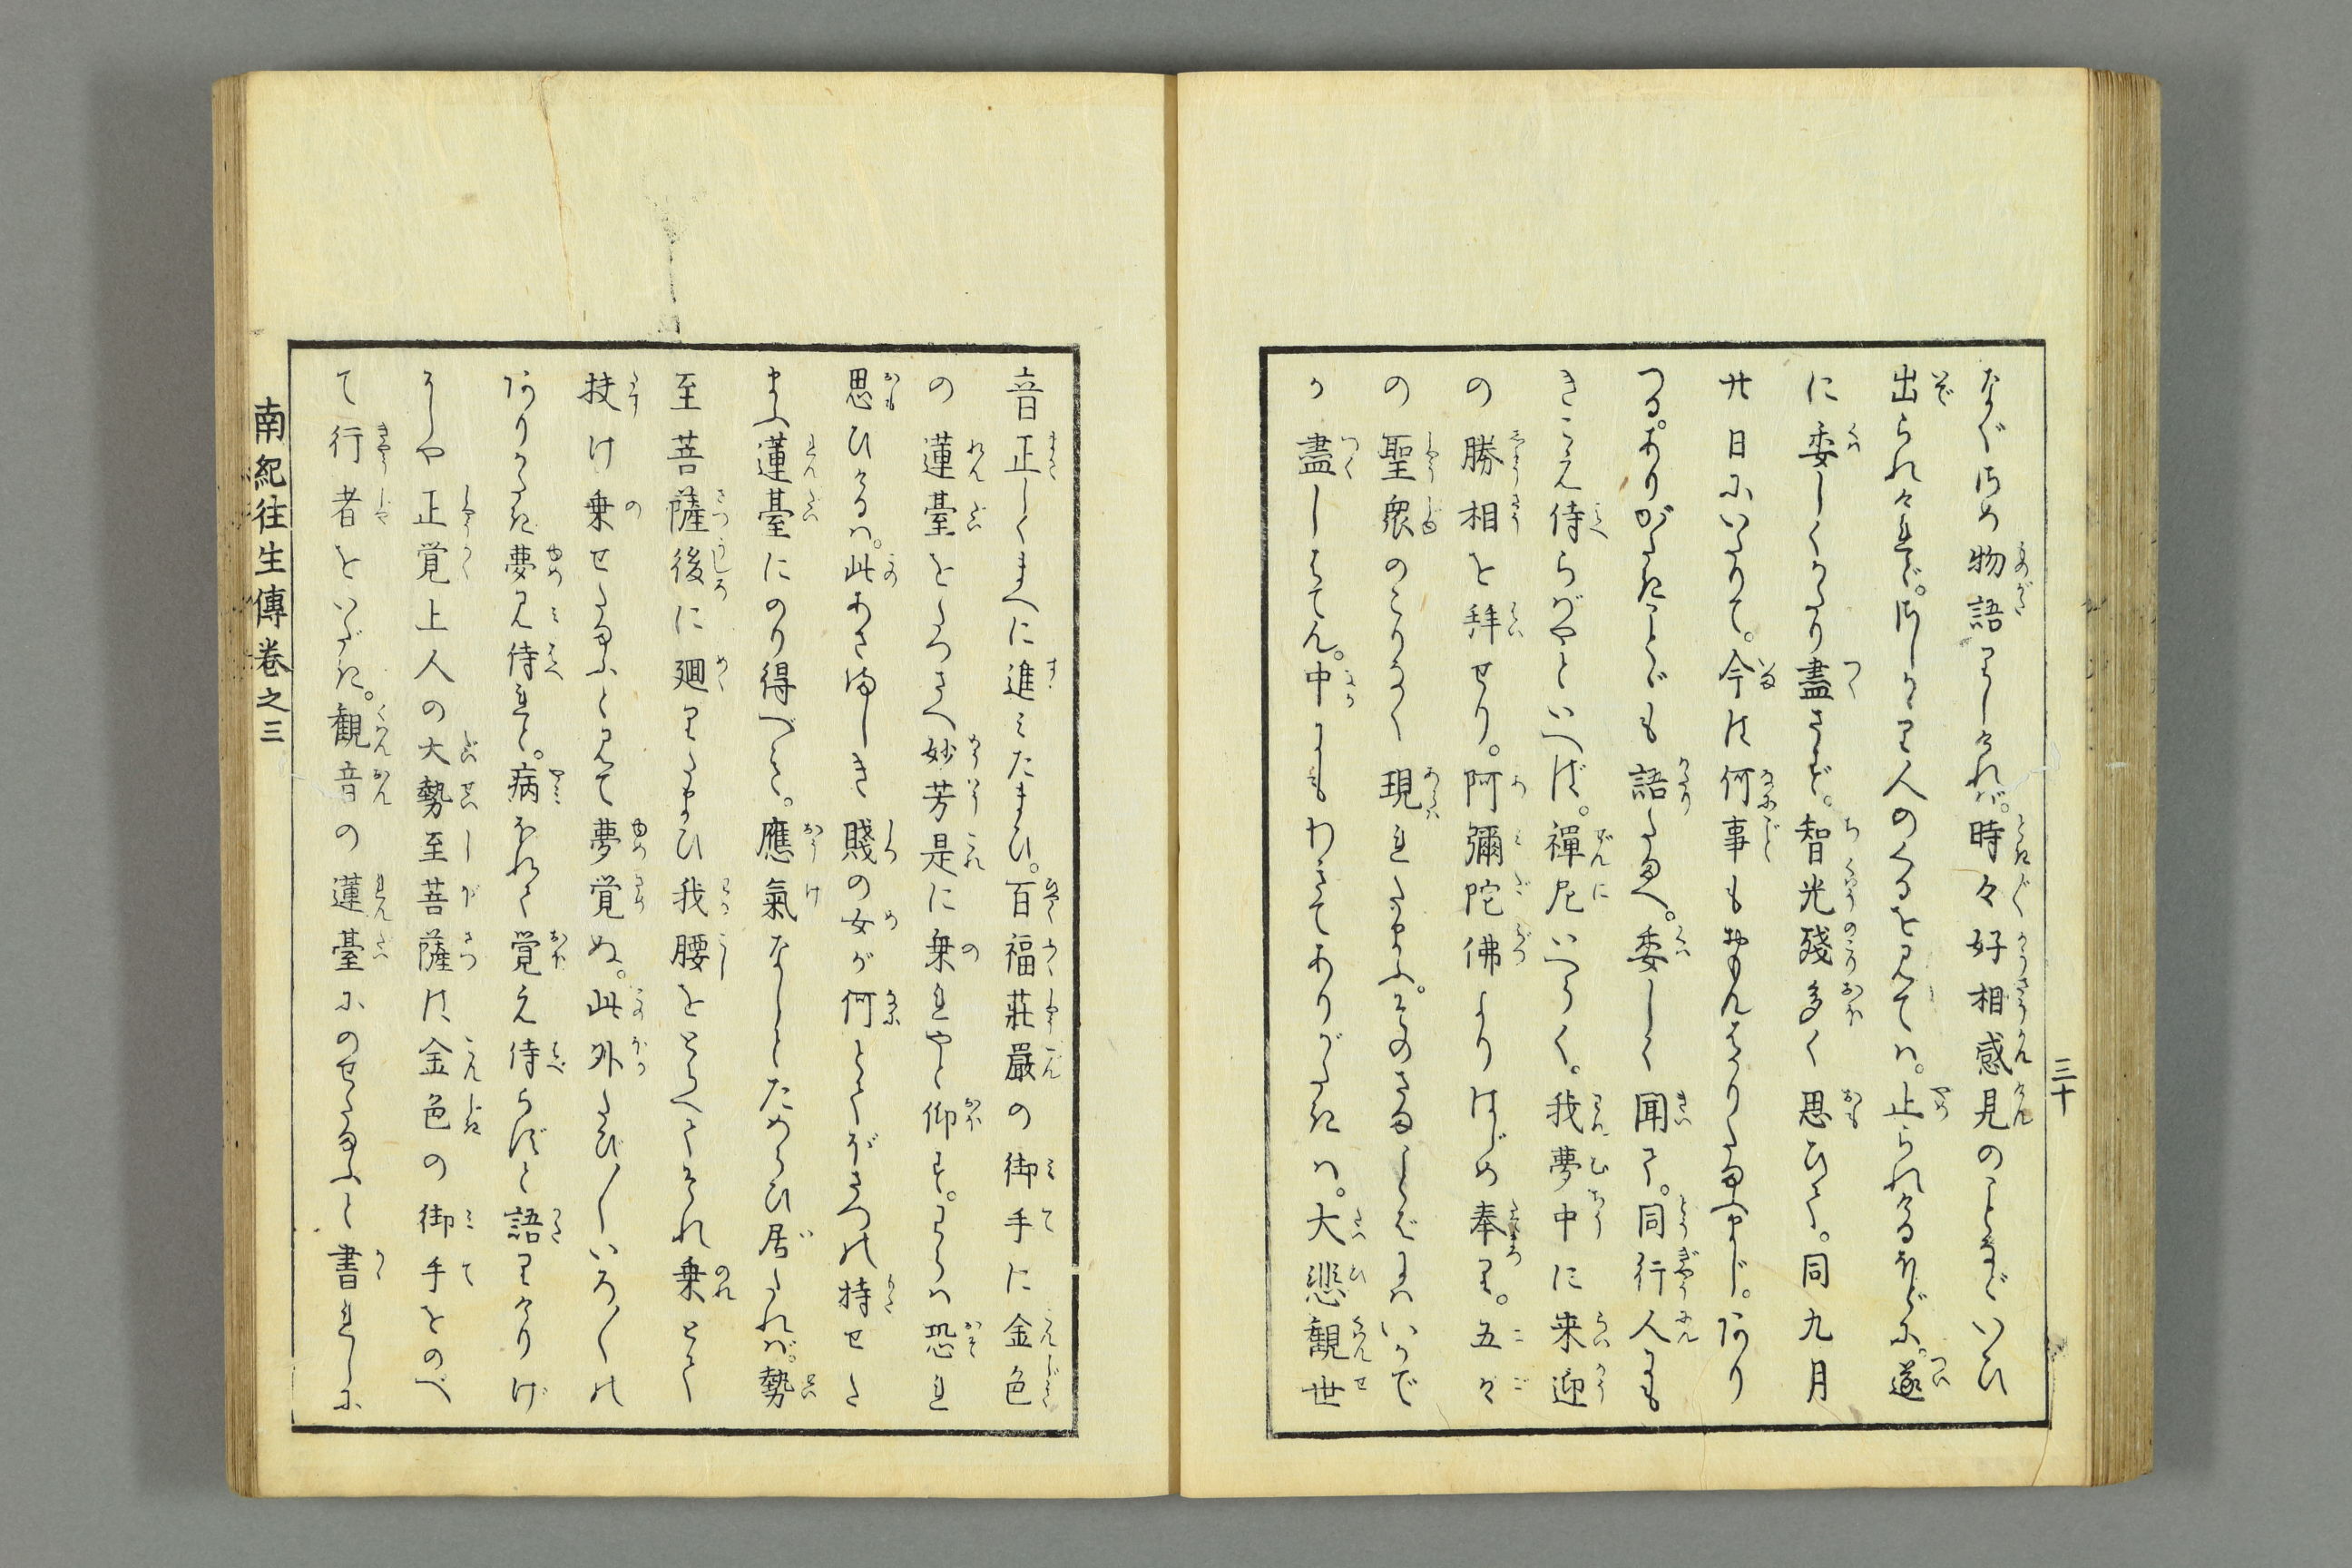 なぐさめ物語せしかば。時々好相感見のことなどいひ
出られければ。さしかゝり人のくるを見ては。止られけるほどに。遂
に委しくかたり盡さず。智光殘多く思ひて。同九月
廿日にいたりて。今は何事もおもんはかりたまふまじ。ありつる
ありがたきことゞも語たまへ。委しく聞て。同行人にも
きこえ侍らばやといへば。禪尼いはく。我夢中に来迎
の勝相を拝せり。阿彌陀佛よりはじめ奉り。五々
の聖衆のこりなく現れたまふ。そのさまことばにはいかで
か盡しはてん。中にもわきてありがたきは。大悲観世
三十
音正しくまへに進みたまひ。百福莊嚴の御手に金色
の蓮臺をさゝへ妙芳是に乗れやと仰す。わらは恐れ
思ひけるは。此あさましき賤の女が何としてがさへの持せた
まふ蓮臺にのり得べきと。應氣なしとためらひ居たれば。勢
至菩薩後に廻りたまひ我腰をとらへてそれ乗とて
扶け乗せたまふと見て夢覚ぬ。此外たび〳〵いろ〳〵の
ありがたき夢見侍れど。病ほれて覚え侍らずと語りけり げ
にや正覚上人の大勢至菩薩は金色の御手をのべ
て行者をいだき。観音の蓮臺にのせたまふと書れしに
南紀往生傳卷之三